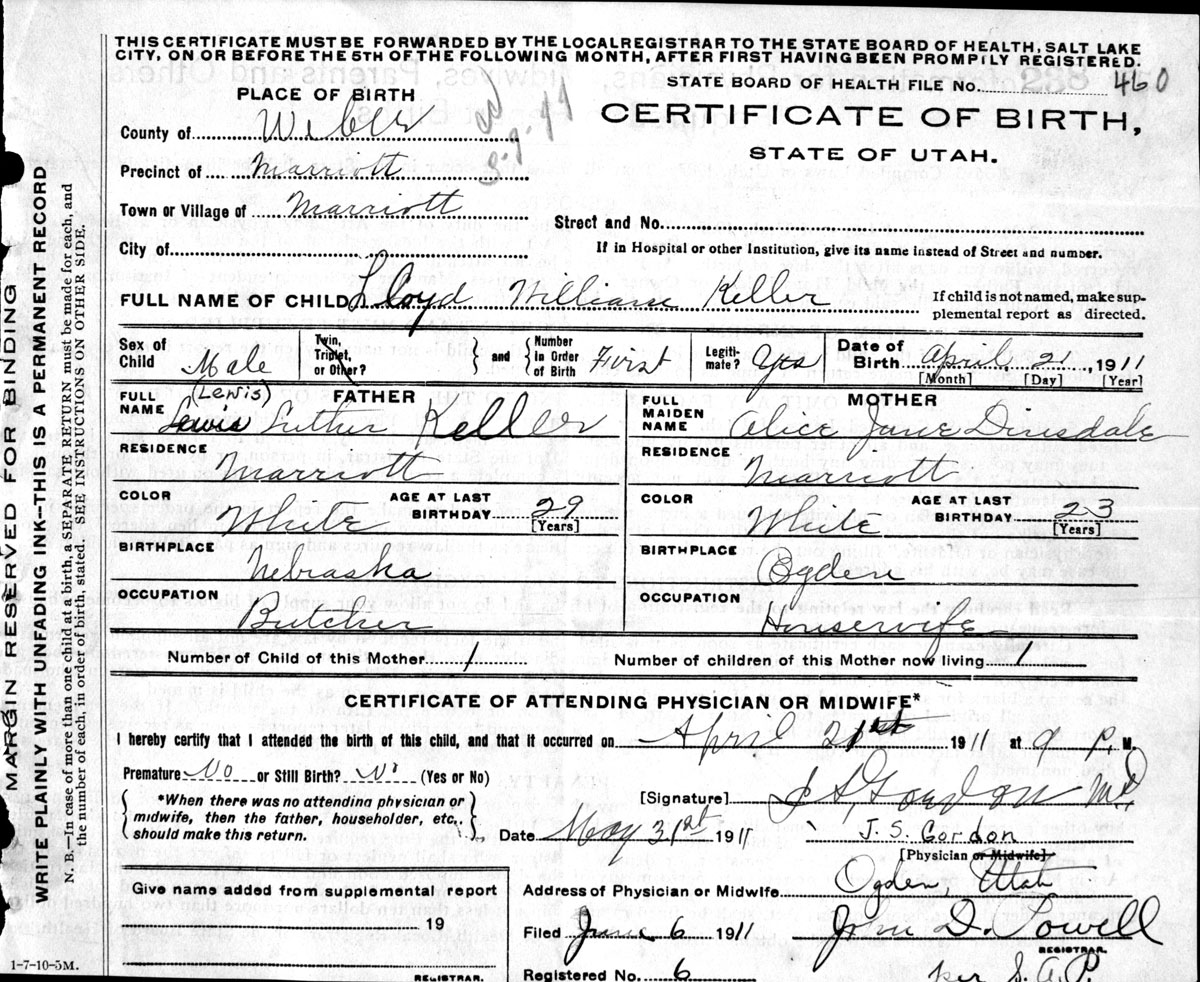 THIS CERTIFICATE MUST BE FORWARDED BY THE LOCAL REGISTRAR TO THE STATE BOARD OF HEALTH, SALT LAKE
CITY, ON OR BEFORE THE 5TH OF THE FOLLOWING MONTH, AFTER FIRST HAVING BEEN PROMPILY REGISTERED.
STATE BOARD OF HEALTH FILE No. 460
PLACE OF BIRTH
CERTIFICATE OF BIRTH,
STATE OF UTAH.
County of Weber
Precinct of Marriott
Town or Village of Marriott
Street and No.
City of
If in Hospital or other Institution, give its name instead of Street and number.
FULL NAME OF CHILD Lloyd William Keller
If child is not named, make sup-
plemental report as directed.
Sex of Child Male
Twin, Triplet, or Other?
{ and { Number in Order of Birth First
Legiti-mate? Yes
Date of Birth April 21, 1911
[Month] [Day] [Year]
FATHER
FULL NAME (Lewis)
Lewis Luther Keller
RESIDENCE
Marriott
COLOR White
AGE AT LAST BIRTHDAY 29
[Years]
BIRTHPLACE
Nebraska
OCCUPATION
Butcher
MOTHER
FULL MAIDEN NAME Alice Jane Dinsdale
RESIDENCE
Marriott
COLOR White
AGE AT LAST BIRTHDAY 23
[Years]
BIRTHPLACE
Ogden
OCCUPATION
Housewife
Number of Child of this Mother 1
Number of children of this Mother now living 1
CERTIFICATE OF ATTENDING PHYSICIAN OR MIDWIFE*
I hereby certify that I attended the birth of this child, and that it occurred on April 21st 1911 at 9 P. M.
Premature No or Still Birth? No (Yes or No)
*When there was no attending physician or
midwife, then the father, householder, etc.,
should make this return.
[Signature] J S Gordon MD.
Date May 31st 1911
J. S. Gordon
[Physician or Midwife]
Address of Physician or Midwife Ogden, Utah
Filed June 6 1911
John D. Powell
REGISTRAR.
Registered No. 6
per S. A. P.
Give name added from supplemental report
19
REGISTRAR.
1-7-10-5M.
MARGIN RESERVED FOR BINDING
WRITE PLAINLY WITH UNFADING INK—THIS IS A PERMANENT RECORD
N. B.—In case of more than one child at a birth, a SEPARATE RETURN must be made for each, and
the number of each, in order of birth, stated. SEE INSTRUCTIONS ON OTHER SIDE.